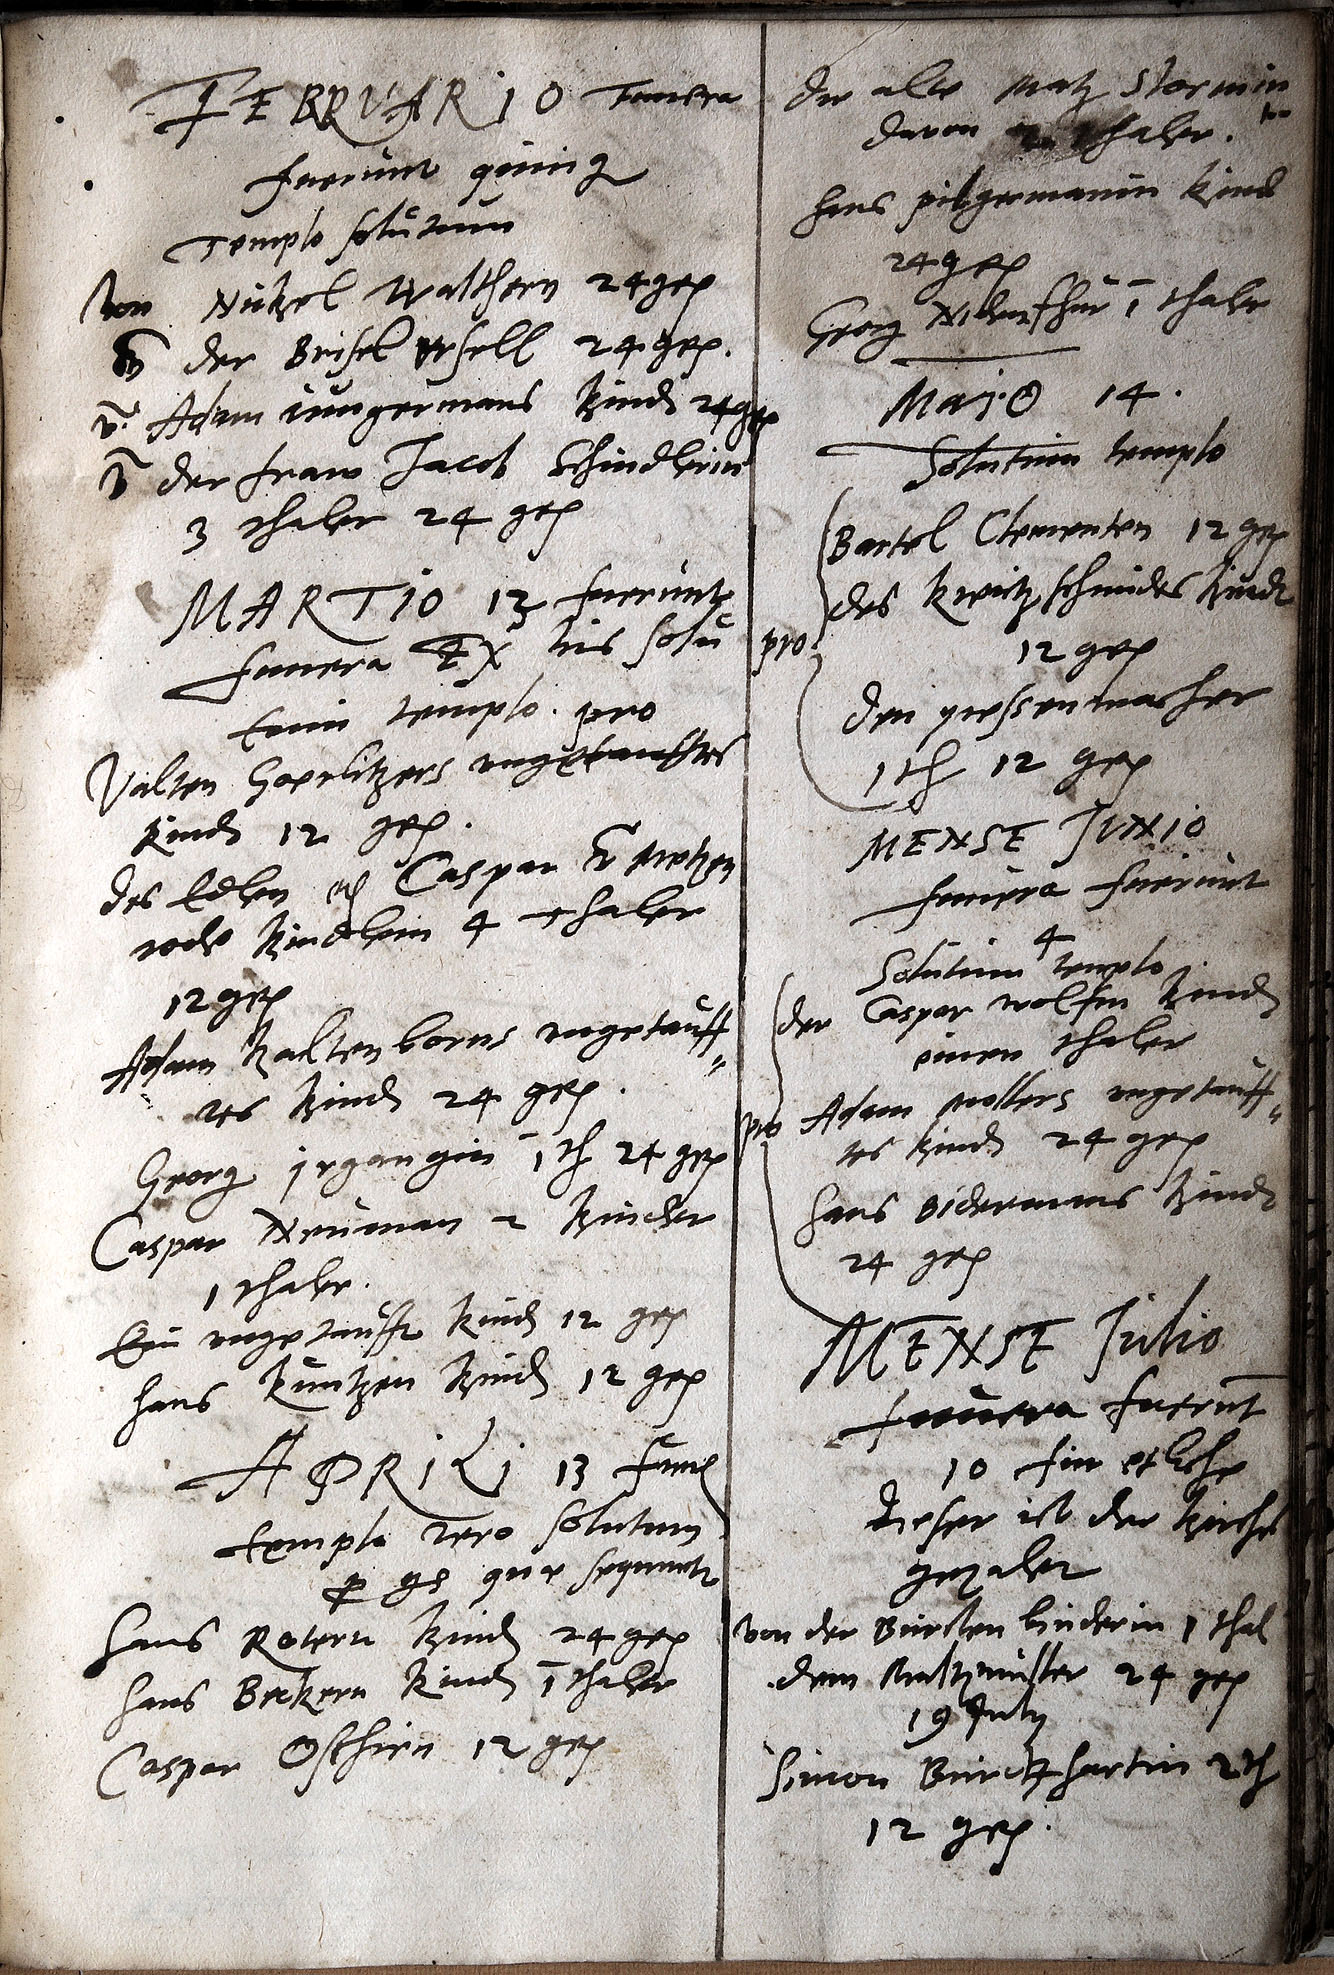 FEBRVARIO Funera
fuerunt
Templo solutum
Von Nickel Walthern 24 gr
der Beisel Vrsell 24 gr.
v. Adam iungermans Kindt 24 gr
v der fraw Jacob Schindlerin
3 thaler 24 gr
MARTIO 13 fuerunt
funera EX his solu
templo. pro
Valten Goerlitzers vngetaufftes
Kindt 12 gr.
des Edlen Caspar
rode Kindlein 4 thaler
12 gr
Adam Kaltenborns vngetauff=
tes Kindt 24 gr.
Georg irgangin 1 th 24 gr
Caspar Neuman 2 Kinder
1 thaler.
Ein vngetaufft Kindt 12 gr
hans Kuntzen Kindt 12 gr
APRILI 13 fune
templo vero solutum
que sequuntur
Hans Rotern Kindt 24 gr
hans Beckern Kindt 1 thaler
Caspar 12 gr
die alte Matz Stormin
davon thaler.
hans pilgermanin Kindt
24 gr
Georg 1 thaler
MajO 14.
Solutum templo
Bartel Clementen 12 gr
des Kindt
pro 12 gr
den
1 th 12 gr
MENSE JVNIO
funera fuerunt
4
Solutum templo.
der Caspar wolfin Kindt
einen thaler
pro Adam Mollers vngetauff=
tes Kindt 24 gr
hans Bidermans Kindt
24 gr
MENSE Julio
funera fuerunt
10 fur etliche
dieser ist der Kirche
gezalet
von der Bürstenbinderin 1 thal
dem 24 gr
19 July
Simon Burckhartin 2 th
12 gr.